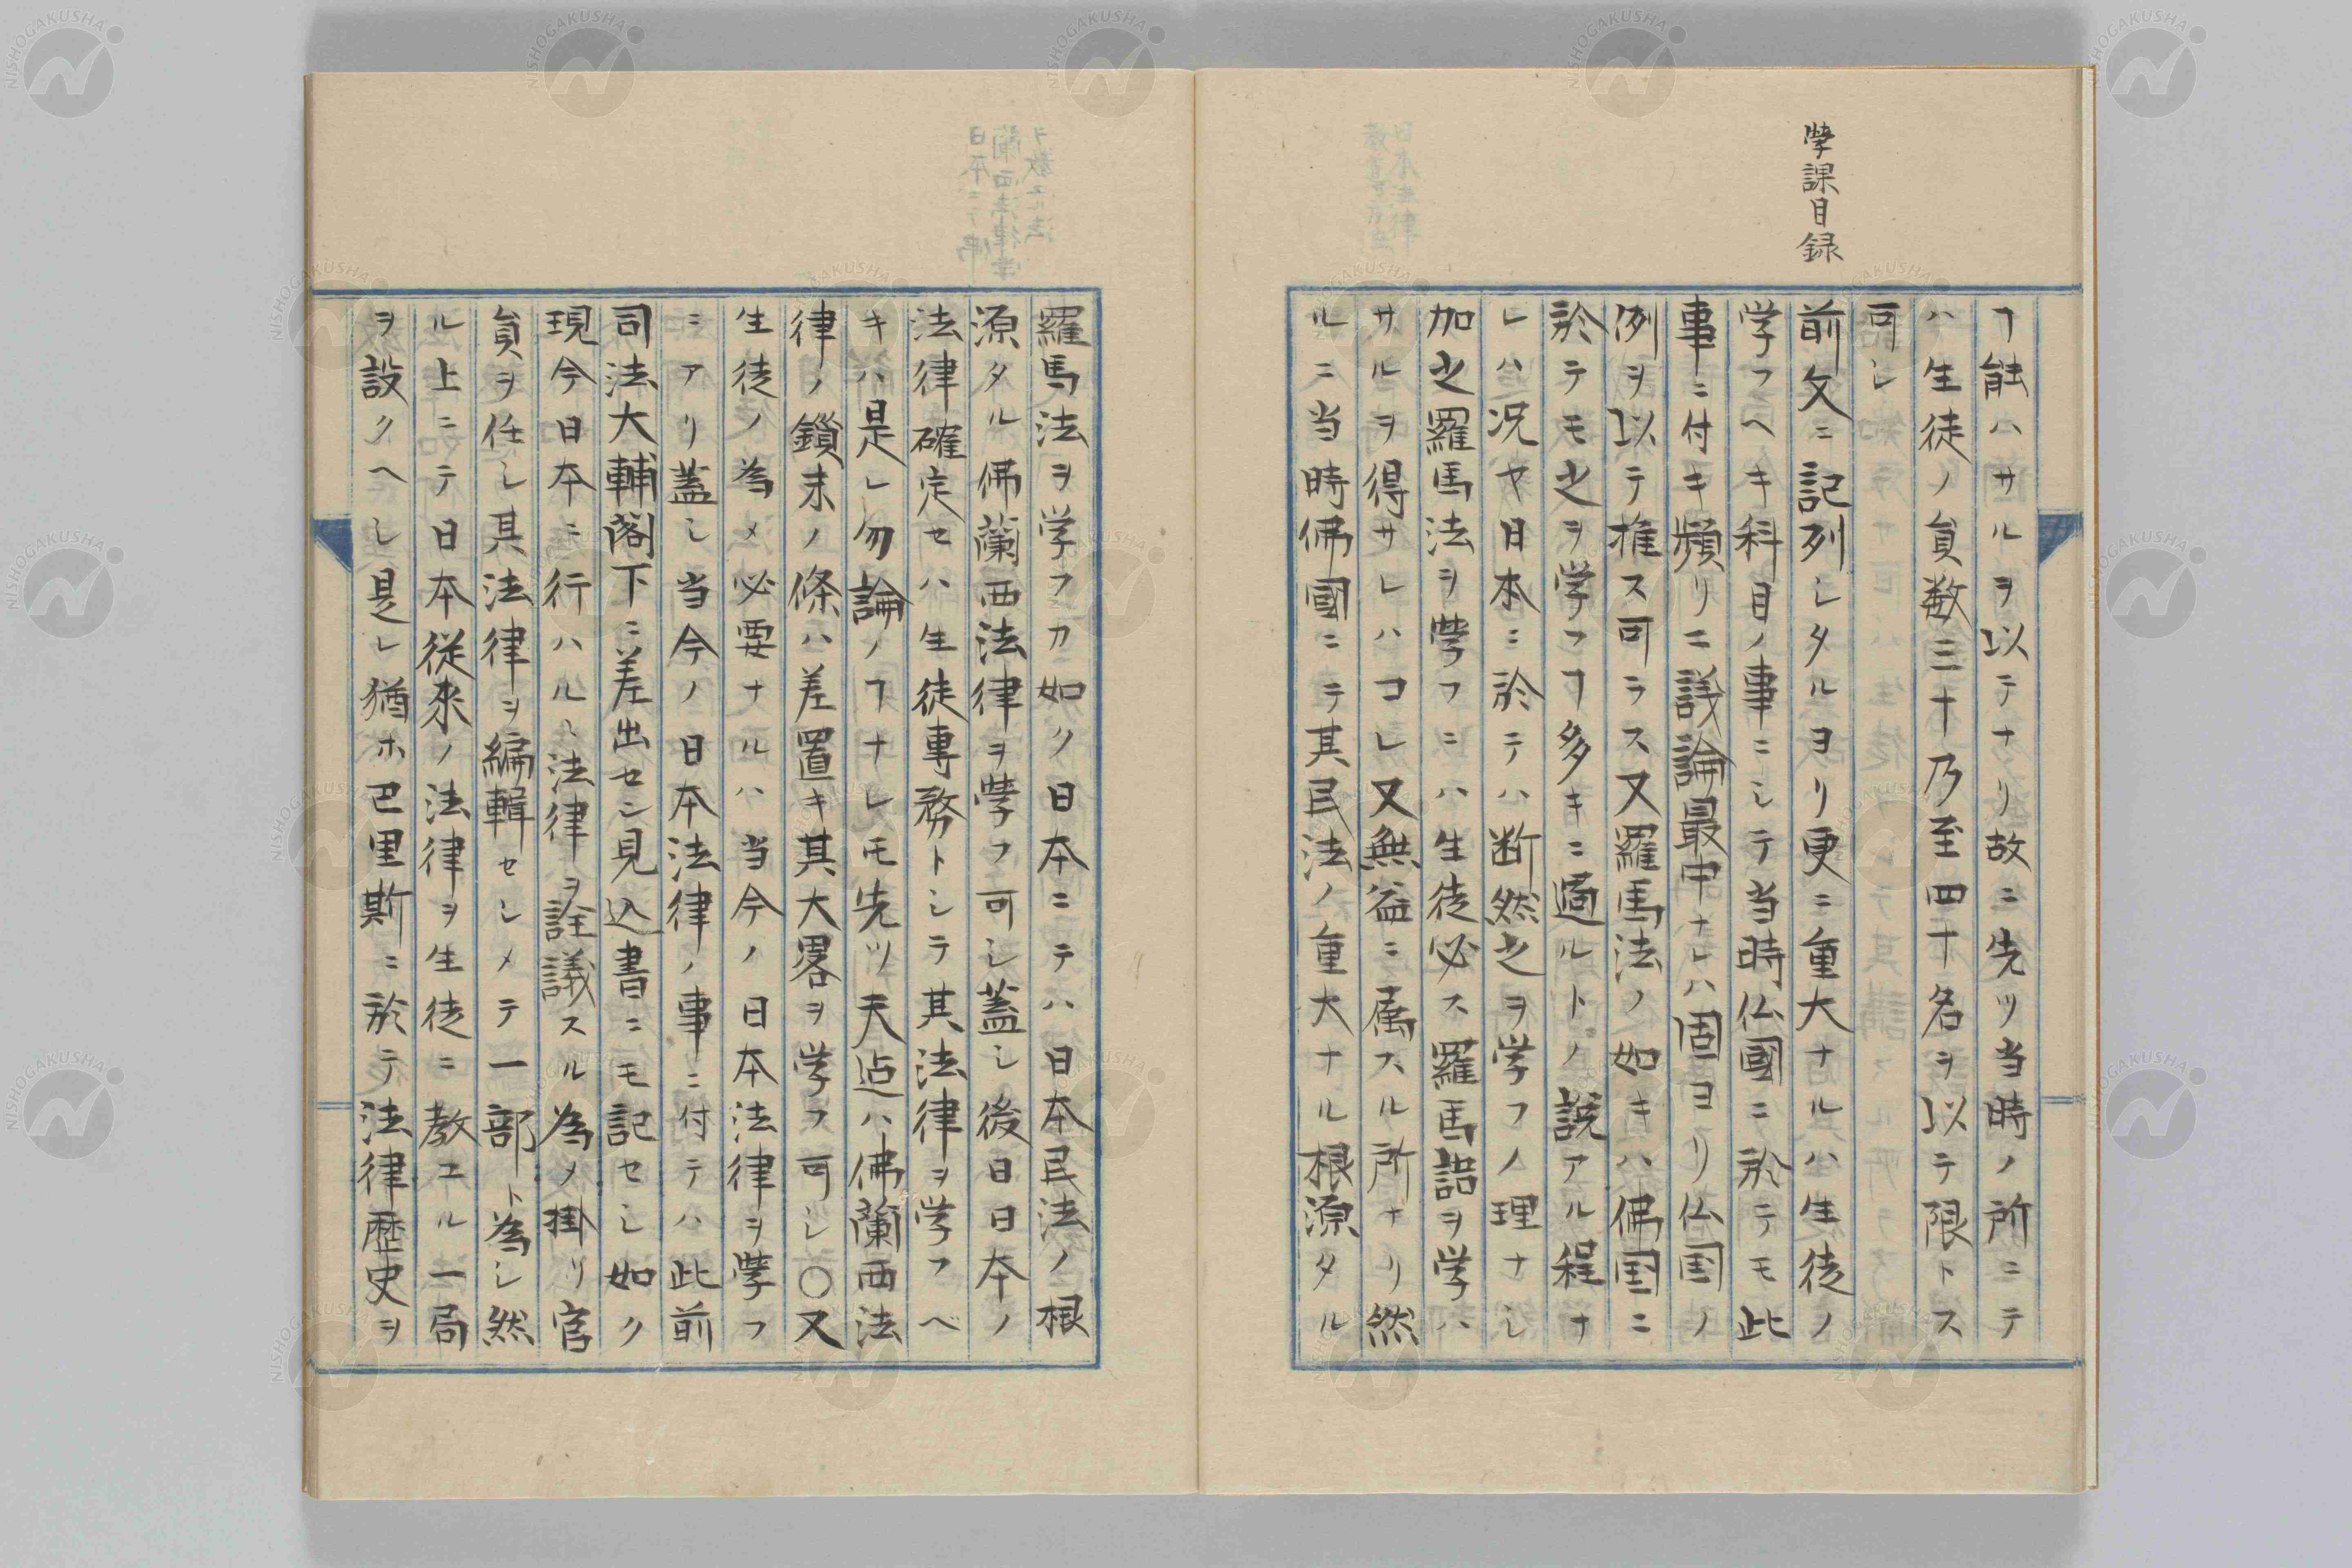 學課目録
ヿ能ハサルヲ以テナリ故ニ先ツ当時ノ所ニテ
ハ生徒ノ負数三十乃至四十名ヲ以テ限トス
可シ
前文ニ記列シタルヨリ更ニ重大ナルハ生徒ノ
学フヘキ科目ノ事ニシテ当時仏國ニ於テモ此
事ニ付キ頻リニ議論最中ナレハ固ヨリ仏国ノ
例ヲ以テ推ス可ラス又羅馬法ノ如キハ佛国ニ
於テモ之ヲ学フヿ多キニ過ルトノ説アル程ナ
レハ况ヤ日本ニ於テハ断然之ヲ学フノ理ナシ
加之羅馬法ヲ學フニハ生徒必ス羅馬語ヲ学ハ
サルヲ得サレハコレ又無益ニ属スル所ナリ然
ルニ当時佛國ニテ其民法ノ重大ナル根源タル
羅馬法ヲ学フカ如ク日本ニテハ日本民法ノ根
源タル佛蘭西法律ヲ學フ可シ蓋シ後日日本ノ
法律確定セハ生徒專務トシテ其法律ヲ学フベ
キハ是レ勿論ノヿナレモ先ツ天迠ハ佛蘭西法
律ノ鎖末ノ條ハ差置キ其大畧ヲ学フ可シ〇又
生徒ノ為メ必要ナルハ当今ノ日本法律ヲ學フ
ニアリ蓋シ当今ノ日本法律ノ事ニ付テハ此前
司法大輔閣下ニ差出セシ見込書ニモ記セシ如ク
現今日本ニ行ハルヽ法律ヲ詮議スル為メ掛リ官
負ヲ任シ其法律ヲ編輯セシメテ一部ト為シ然
ル上ニテ日本従来ノ法律ヲ生徒ニ教エル一局
ヲ設クヘシ是レ猶ホ巴里斯ニ於テ法律歴史ヲ
NISHOGAKUSHA